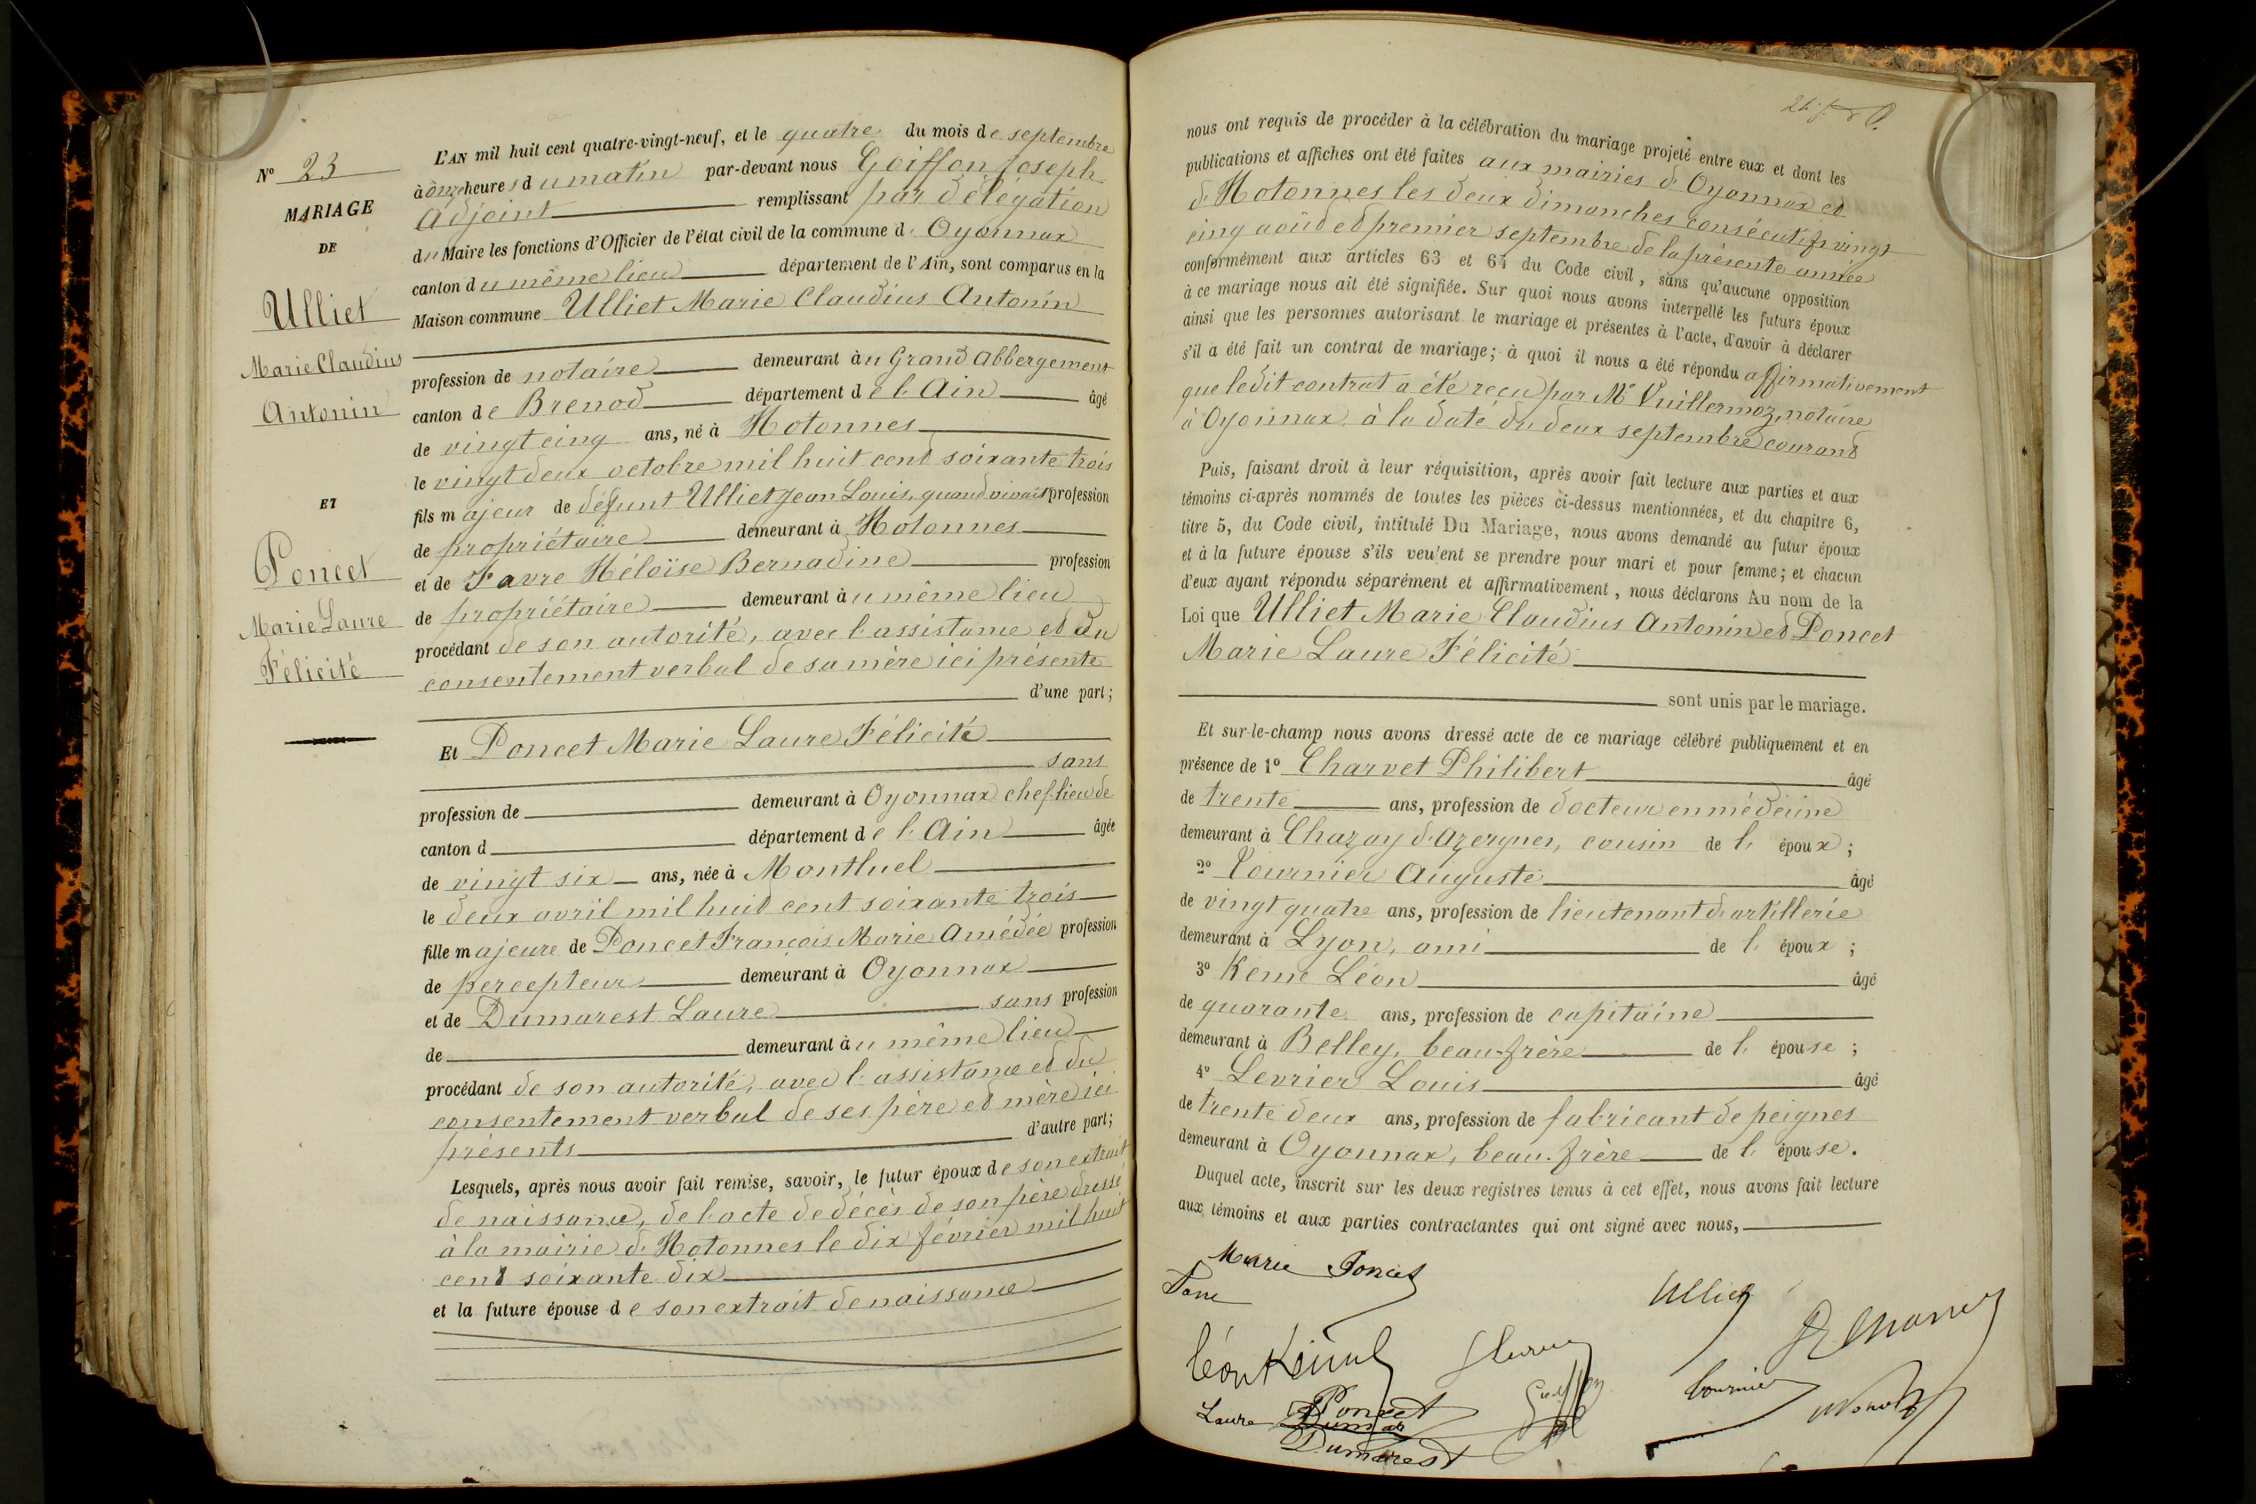 N° 23
MARIAGE
DE
Ulliet
Marie Claudius
Antonin
ET
Poncet
Marie Laure
Félicité
L'AN mil huit cent quatre-vingt-neuf, et le quatre du mois de septembre
à onze heures du matin par-devant nous Goiffon Joseph
Adjoint remplissant par délégation
du Maire les fonctions d'Officier de l'état civil de la commune d'Oyonnax
canton du même lieu département de l'Ain, sont comparus en la
Maison commune Ulliet Marie Claudius Antonin
profession de notaire demeurant au Grand Abbergement
canton de Brenod département de l'Ain âgé
de vingt cinq ans, né à Hotonnes
le vingt deux octobre mil huit cent soixante trois
fils majeur de défunt Ulliet Jean Louis, quand vivait profession
de propriétaire demeurant à Hotonnes
et de Favre Héloïse Bernadine profession
de propriétaire demeurant au même lieu
procédant de son autorité, avec l'assistance et du
consentement verbal de sa mère ici présente
d'une part;
Et Poncet Marie Laure Félicité
sans
profession de demeurant à Oyonnax chef-lieu de
canton d département de l'Ain âgée
de vingt six ans, née à Montluel
le deux avril mil huit cent soixante trois
fille majeure de Poncet François Marie Amédée profession
de percepteur demeurant à Oyonnax
et de Dumarest Laure sans profession
de demeurant au même lieu
procédant de son autorité, avec l'assistance et du
consentement verbal de ses père et mère ici
présents d'autre part;
Lesquels, après nous avoir fait remise, savoir, le futur époux de son extrait
de naissance, de l'acte de décès de son père dressé
à la mairie d'Hotonnes le dix février mil huit
cent soixante dix
et la future épouse de son extrait de naissance
nous ont requis de procéder à la célébration du mariage projeté entre eux et dont les
publications et affiches ont été faites aux mairies d'Oyonnax et
d'Hotonnes les deux dimanches consécutifs vingt
cinq août et premier septembre de la présente année
conformément aux articles 63 et 64 du Code civil, sans qu'aucune opposition
à ce mariage nous ait été signifiée. Sur quoi nous avons interpellé les futurs époux
ainsi que les personnes autorisant le mariage et présentes à l'acte, d'avoir à déclarer
s'il a été fait un contrat de mariage; à quoi il nous a été répondu affirmativement
que ledit contrat a été reçu par Me Vuillermoz, notaire
à Oyonnax à la date du deux septembre courant
Puis, faisant droit à leur réquisition, après avoir fait lecture aux parties et aux
témoins ci-après nommés de toutes les pièces ci-dessus mentionnées, et du chapitre 6,
titre 5, du Code civil, intitulé Du Mariage, nous avons demandé au futur époux
et à la future épouse s'ils veulent se prendre pour mari et pour femme; et chacun
d'eux ayant répondu séparément et affirmativement, nous déclarons Au nom de la
Loi que Ulliet Marie Claudius Antonin et Poncet
Marie Laure Félicité
sont unis par le mariage.
Et sur-le-champ nous avons dressé acte de ce mariage célébré publiquement et en
présence de 1° Charvet Philibert âgé
de trente ans, profession de docteur en médecine
demeurant à Chazay d'Azergues, cousin de l'époux;
2° Tournier Auguste âgé
de vingt quatre ans, profession de lieutenant d'artillerie
demeurant à Lyon, ami de l'époux;
3° Léon âgé
de quarante ans, profession de capitaine
demeurant à Belley, beau-frère de l'épouse;
4° Levrier Louis âgé
de trente deux ans, profession de fabricant de peignes
demeurant à Oyonnax, beau-frère de l'épouse.
Duquel acte, inscrit sur les deux registres tenus à cet effet, nous avons fait lecture
aux témoins et aux parties contractantes qui ont signé avec nous,
Marie Poncet
Ulliet
Léon
Tournier
Laure
Poncet
Dumarest